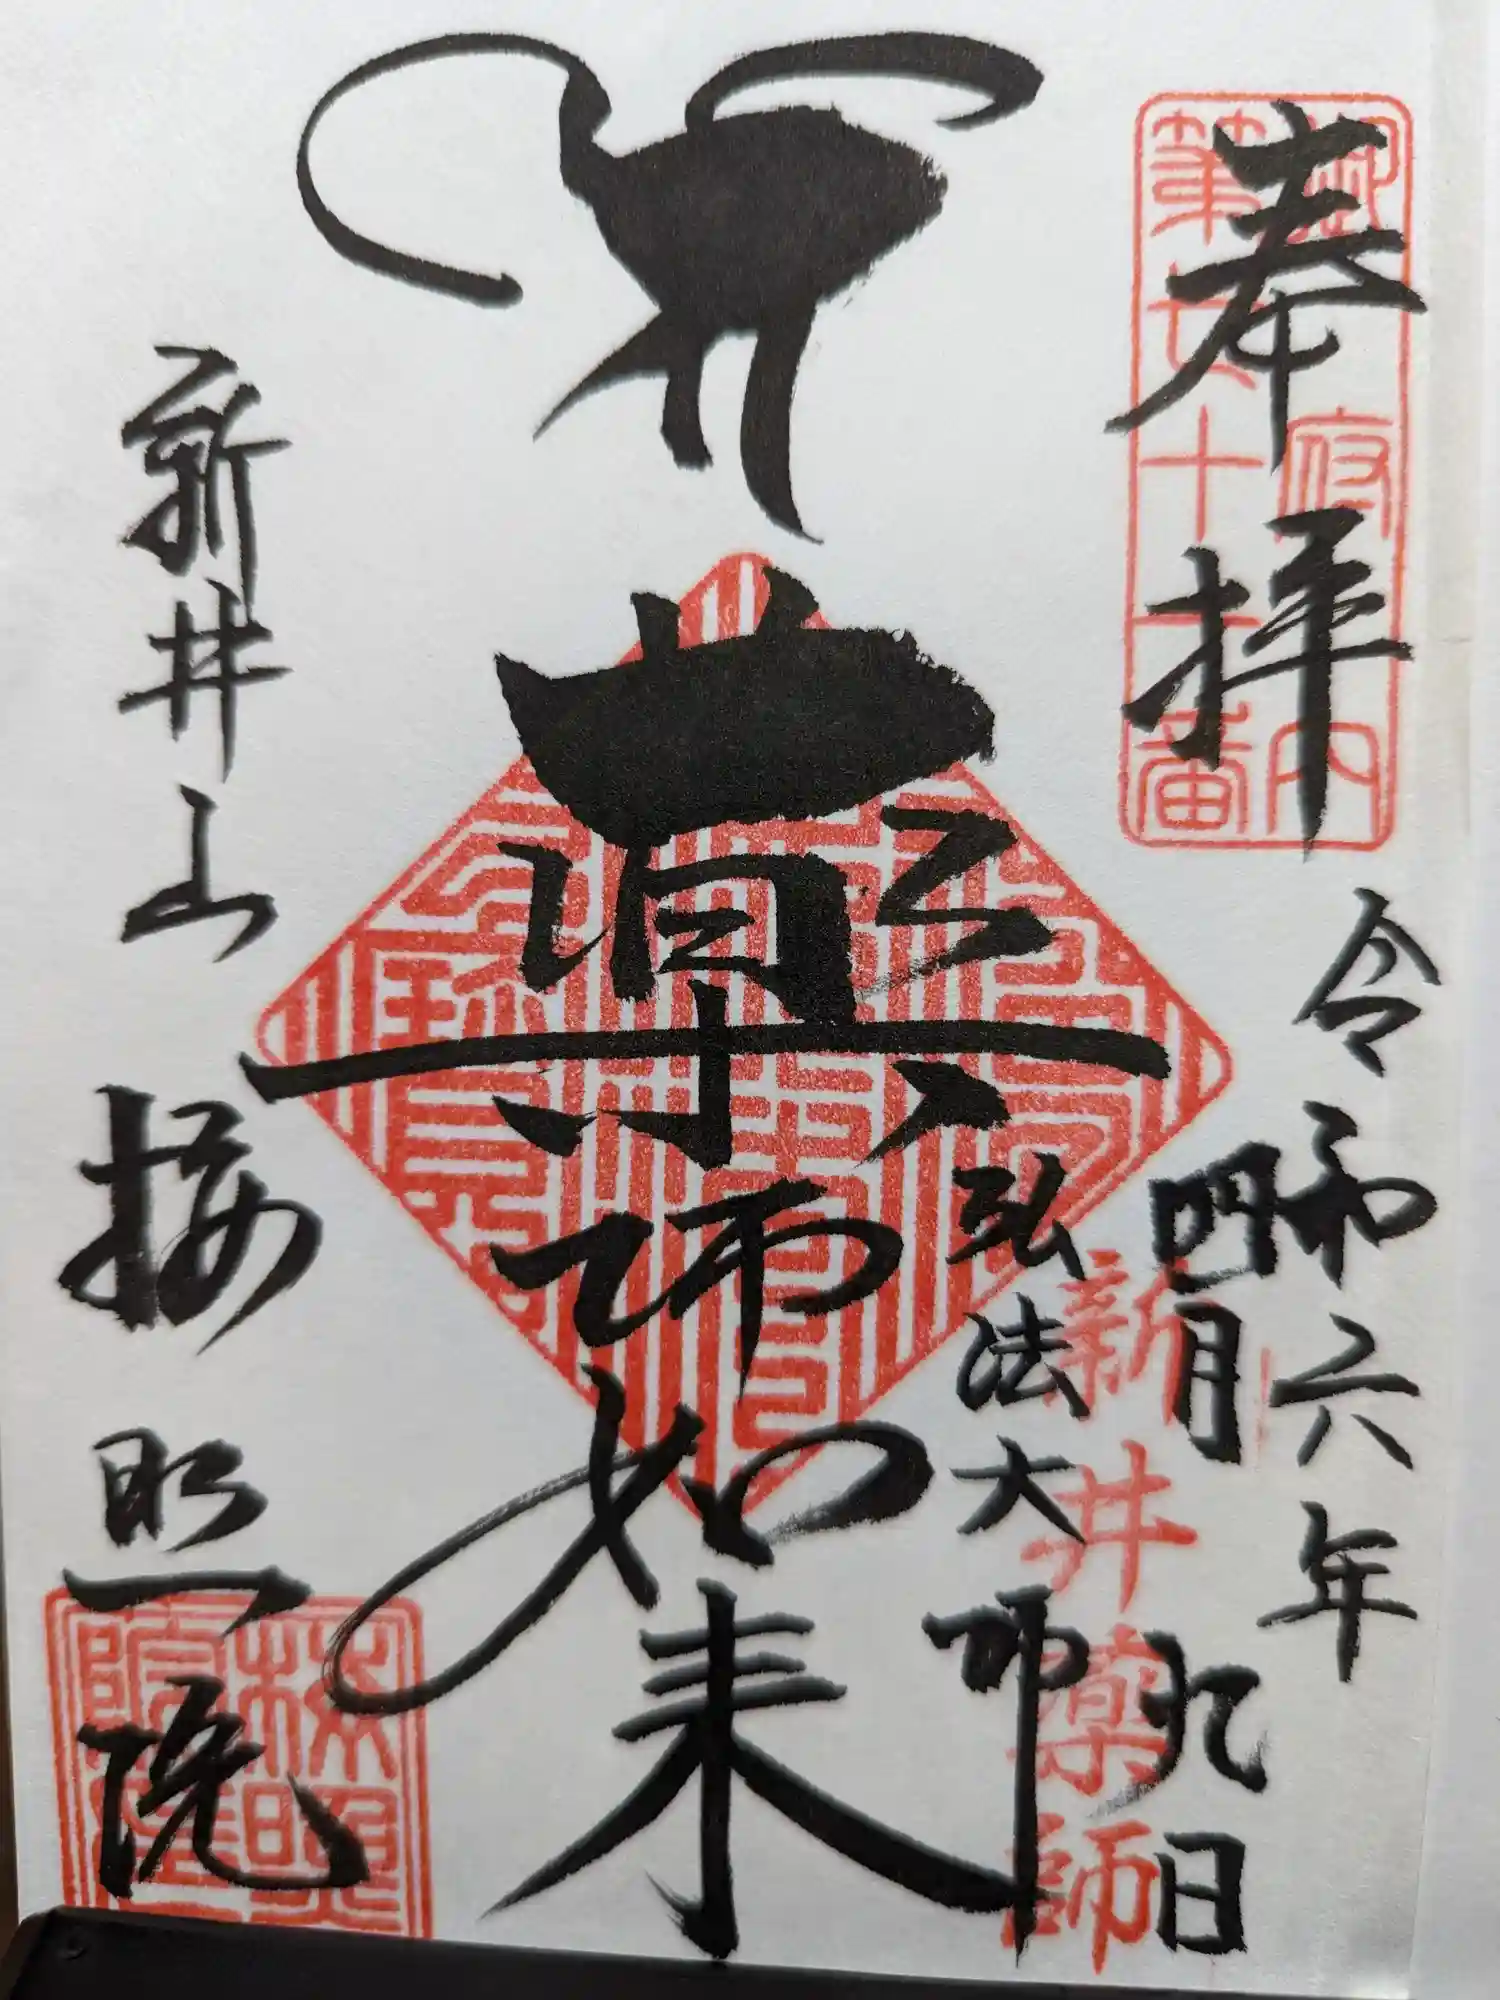 奉拝
御府内
第七十一番
令和六年
四月九日
弘法大師
薬師如来
新井薬師
新井山
梅照院